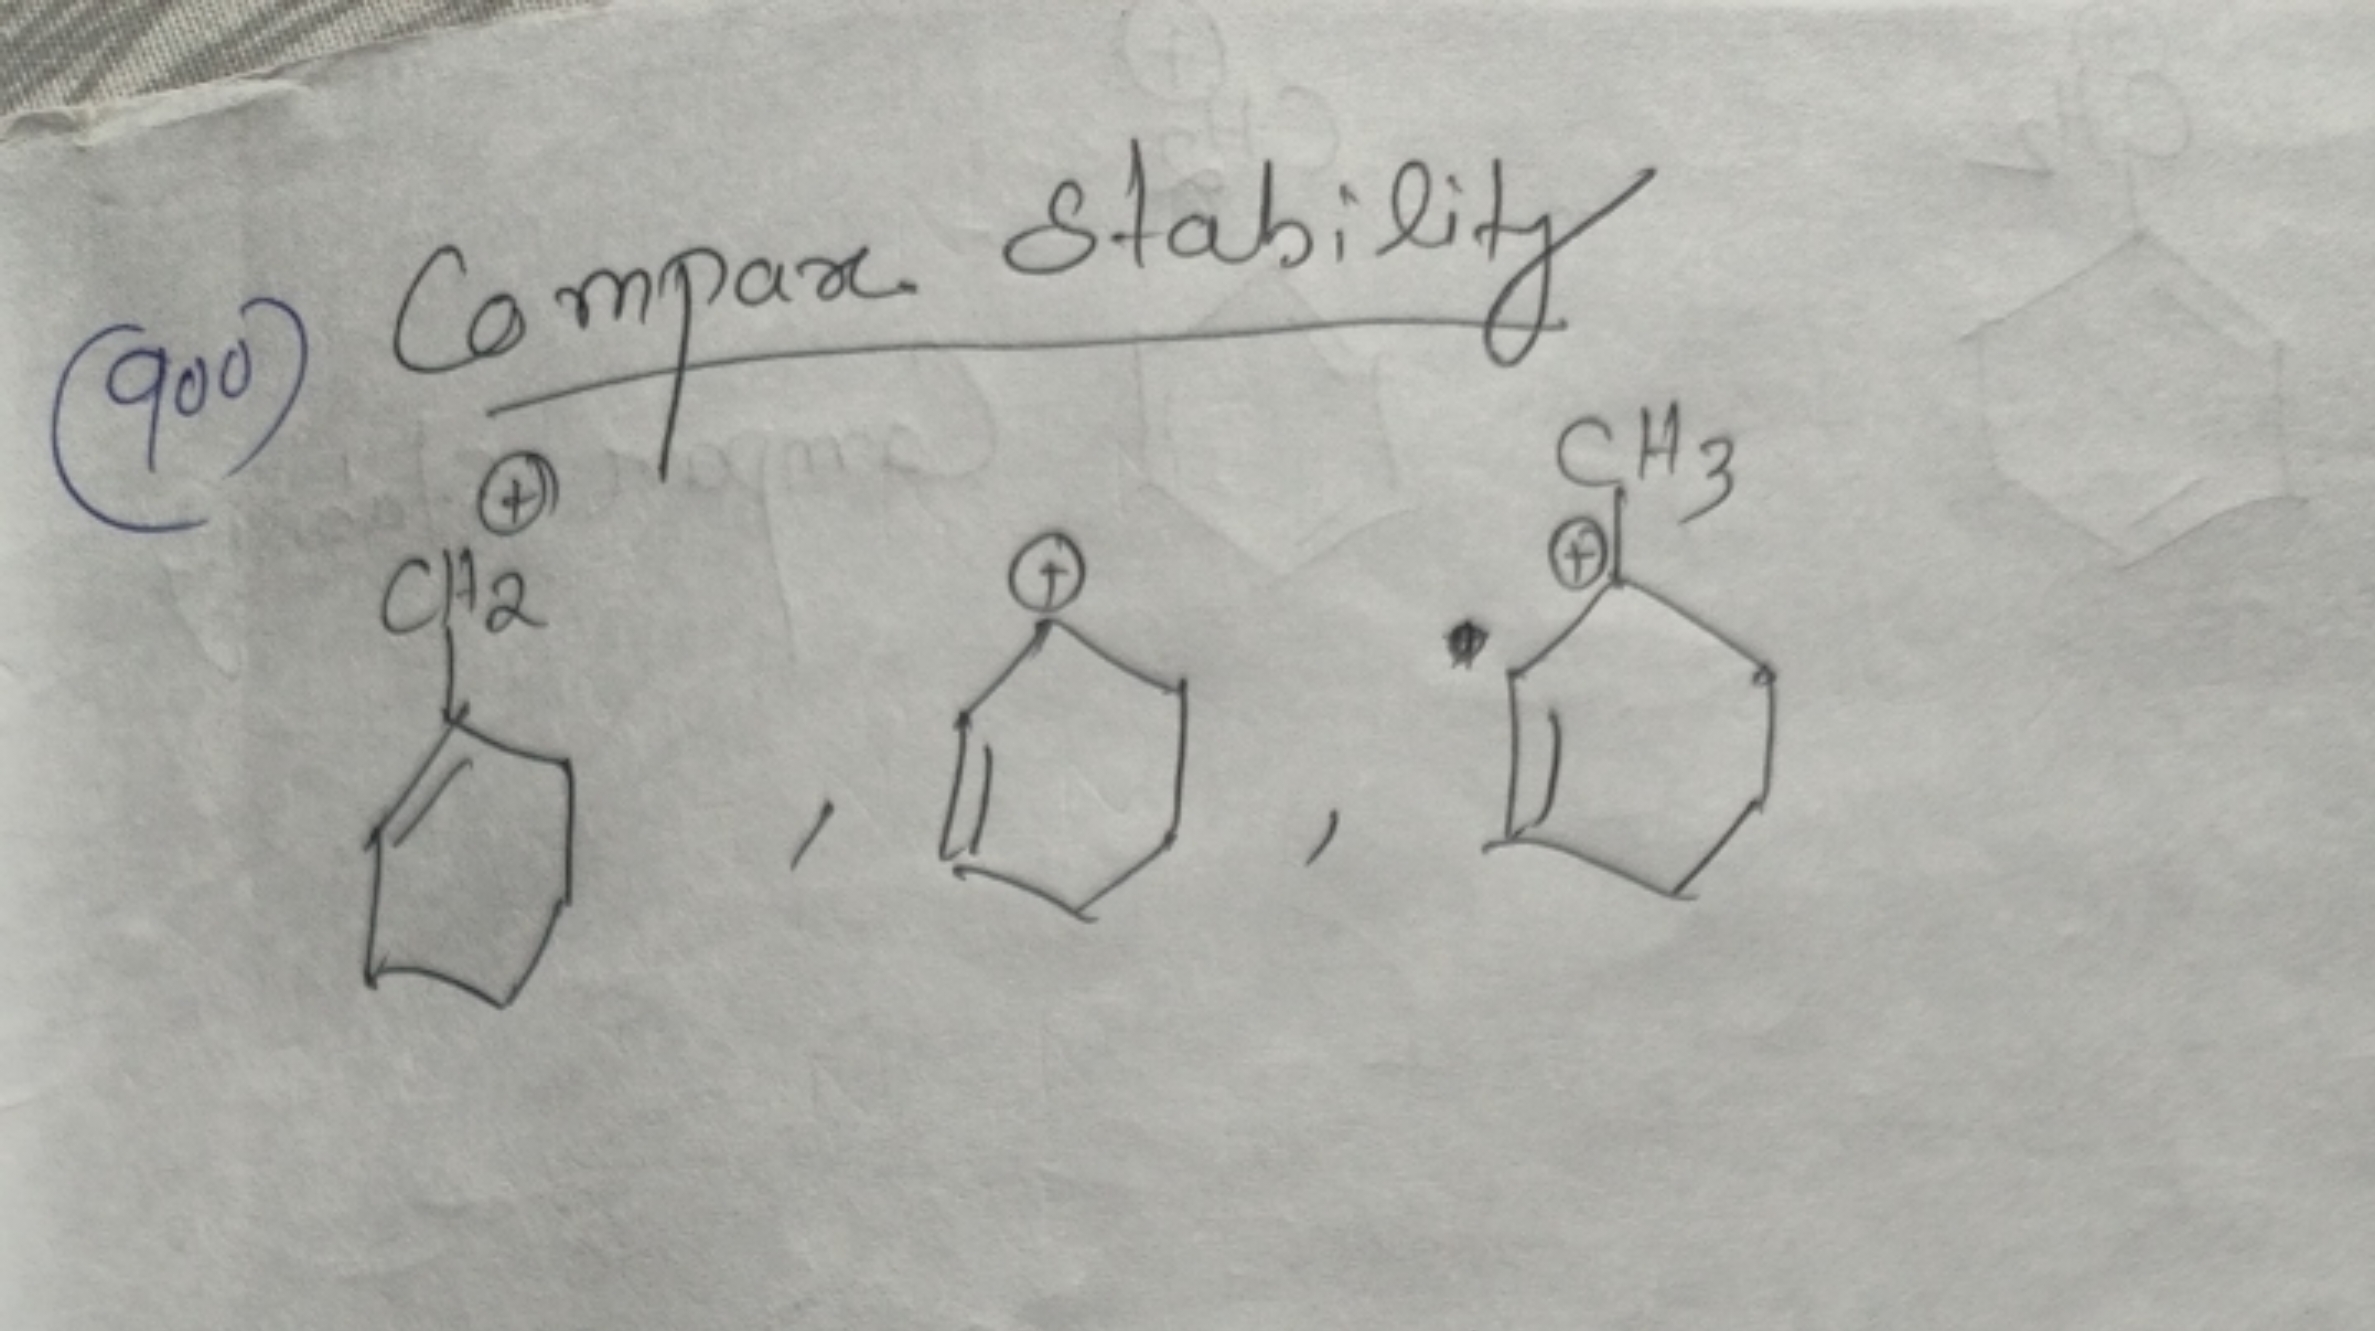 (900) Compare Stability
⊕ CH3
CH2 ⊕ ⊕
, ,